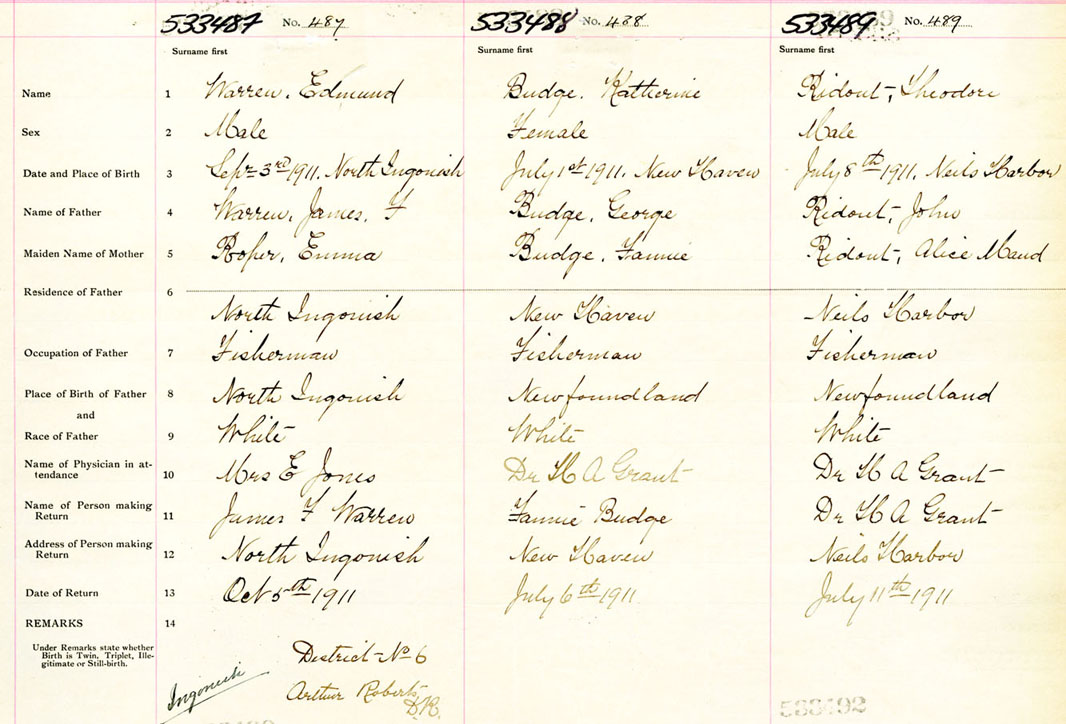 533487 No. 487 533488 No. 488 533489 No. 489
Surname first Surname first Surname first
Name 1 Warren, Edmund Budge, Katherine Ridout, Theodore
Sex 2 Male Female Male
Date and Place of Birth 3 Sept 3rd 1911, North Ingonish July 1st 1911, New Haven July 8th 1911, Neils Harbor
Name of Father 4 Warren, James, F Budge, George Ridout, John
Maiden Name of Mother 5 Roper, Emma Budge, Fannie Ridout, Alice Maud
Residence of Father 6
North Ingonish New Haven Neils Harbor
Occupation of Father 7 Fisherman Fisherman Fisherman
Place of Birth of Father 8 North Ingonish Newfoundland Newfoundland
and
Race of Father 9 White White White
Name of Physician in at-
tendance 10 Mrs E Jones Dr H A Grant Dr H A Grant
Name of Person making
Return 11 James F Warren Fannie Budge Dr H A Grant
Address of Person making
Return 12 North Ingonish New Haven Neils Harbor
Date of Return 13 Oct 5th 1911 July 6th 1911 July 11th 1911
REMARKS 14
Under Remarks state whether
Birth is Twin, Triplet, Ille-
gitimate or Still-birth.
District No 6
Ingonish Arthur Roberts
D.R.
533492